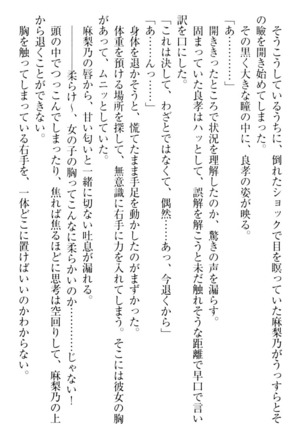 そうこうしているうちに、倒れたショックで目を瞑っていた麻梨乃がうっすらとそ
の瞼を開き始めてしまった。
その黒く大きな瞳の中に、良孝の姿が映る。
「あ………」
開ききったところで状況を理解したのか、驚きの声を漏らす。
固まっていた良孝はハッとして、誤解を解こうと未だ触れそうな距離で早口で言い
訳を口にした。
「これは決して、わざとではなくて、偶然……あっ、今退くから」
「あ……んっ……」
身体を退かそうと、慌てたまま手足を動かしたのがまずかった。
体重を預ける場所を探して、無意識に右手に力を入れてしまう。そこには彼女の胸
があって、ムニッとしていた。
麻梨乃の唇から、甘い匂いと一緒に切ない吐息が漏れる。
――――柔らけー、女の子の胸ってこんなに柔らかいのか………じゃない！
頭の中でつっこんでしまったり、焦れば焦るほどに思考は空回りして、麻梨乃の上
から退くことができない。
胸を触ってしまっている右手を、一体どこに置けばいいのかわからない。